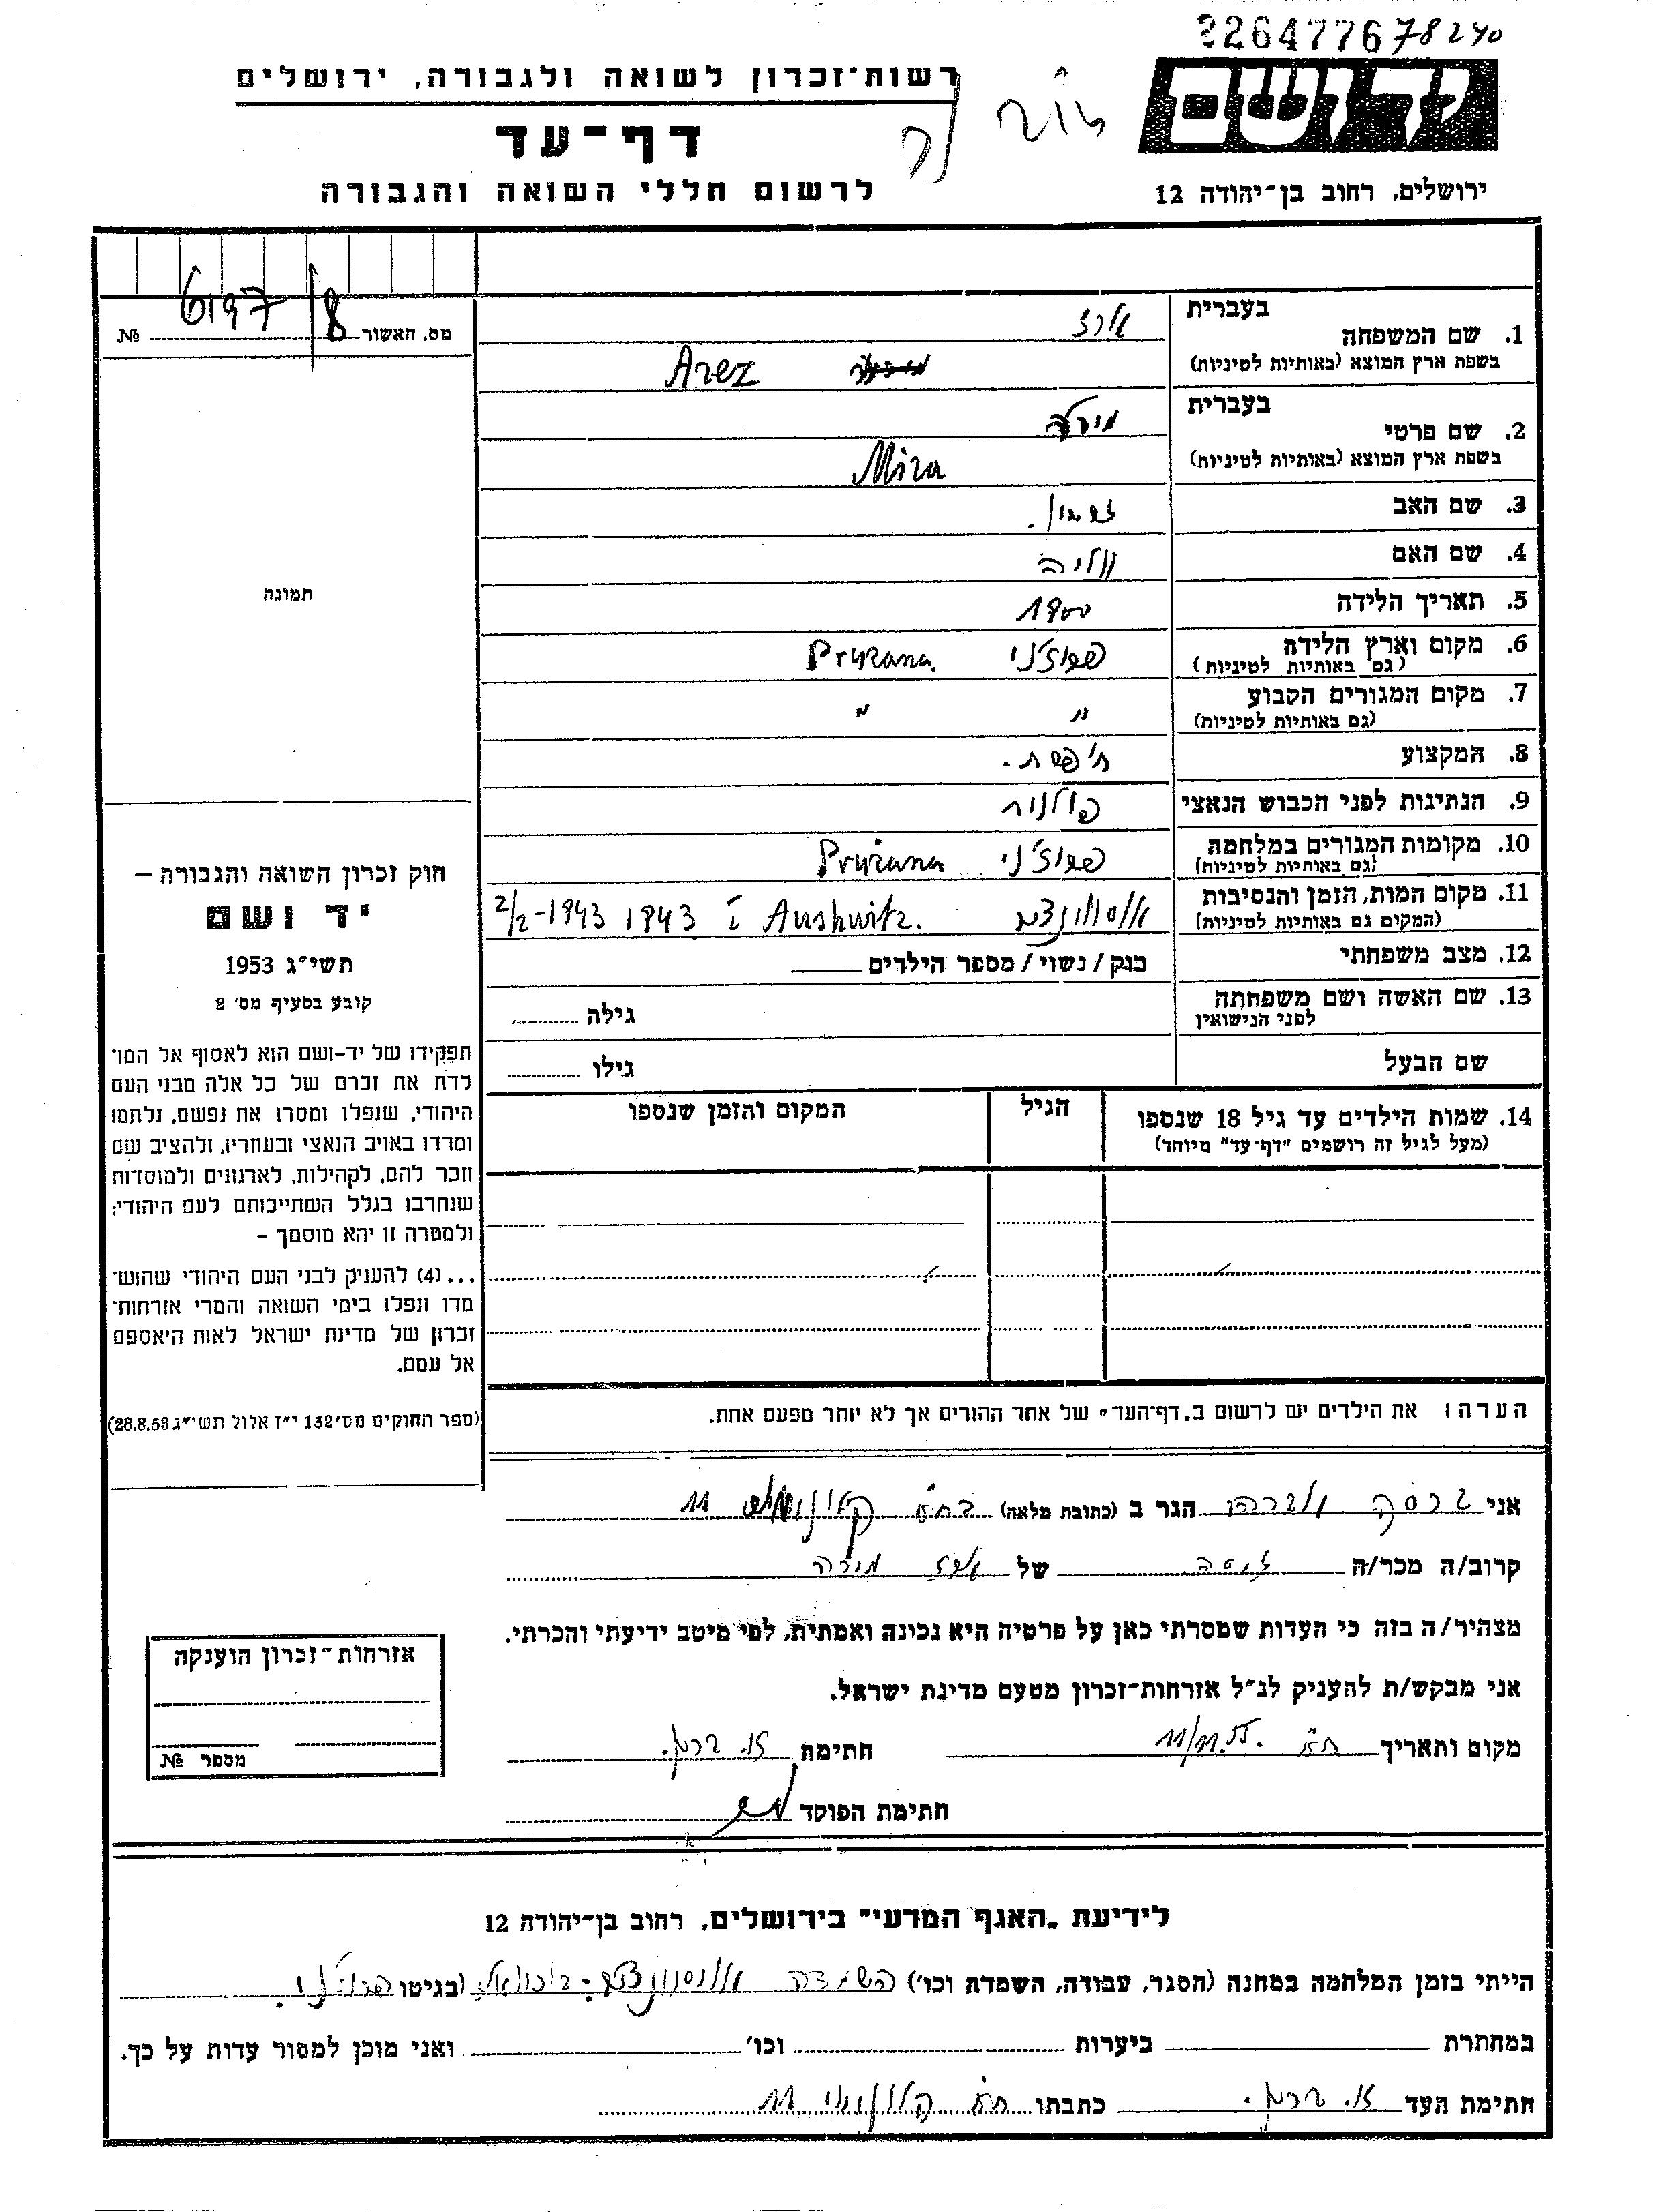 2264776 78240
יד ושם
ירושלים, רחוב בן־יהודה 12
רשות־זכרון לשואה ולגבורה, ירושלים
דף־עד
לרשום חללי השואה והגבורה
מס. האשור 8/6197 №
תמונה
חוק זכרון השואה והגבורה —
יד ושם
תשי״ג 1953
קובע בסעיף מס׳ 2
תפקידו של יד-ושם הוא לאסוף אל המו־
לדת את זכרם של כל אלה מבני העם
היהודי, שנפלו ומסרו את נפשם, נלחמו
ומרדו באויב הנאצי ובעוזריו, ולהציב שם
וזכר להם, לקהילות, לארגונים ולמוסדות
שנחרבו בגלל השתייכותם לעם היהודי;
ולמטרה זו יהא מוסמך –
...(4) להעניק לבני העם היהודי שהוש־
מדו ונפלו בימי השואה והמרי אזרחות־
זכרון של מדינת ישראל לאות היאספם
אל עמם.
(ספר החוקים מס׳ 132 י״ז אלול תשי״ג 28.8.53)
בעברית ארז
1. שם המשפחה
בשפת ארץ המוצא (באותיות לטיניות) Arez
בעברית מירה
2. שם פרטי
בשפת ארץ המוצא (באותיות לטיניות) Mira
3. שם האב
4. שם האם
5. תאריך הלידה 1900
6. מקום וארץ הלידה פרוז׳ני Pružana.
(גם באותיות לטיניות)
7. מקום המגורים הקבוע " "
(גם באותיות לטיניות)
8. המקצוע
9. הנתינות לפני הכבוש הנאצי פולנית
10. מקומות המגורים במלחמה פרוז׳ני Pružana
(גם באותיות לטיניות)
11. מקום המות, הזמן והנסיבות Aushwitz. 1943 2/2-1943
(המקום גם באותיות לטיניות)
12. מצב משפחתי רוק / נשוי / מספר הילדים
13. שם האשה ושם משפחתה גילה
לפני הנישואין
שם הבעל גילו
14. שמות הילדים עד גיל 18 שנספו הגיל המקום והזמן שנספו
(מעל לגיל זה רושמים "דף־עד" מיוחד)
הערה: את הילדים יש לרשום ב„דף־העד" של אחד ההורים אך לא יותר מפעם אחת.
אני הגר ב (כתובת מלאה) 11
קרוב/ה מכר/ה של ארז מירה
מצהיר/ה בזה כי העדות שמסרתי כאן על פרטיה היא נכונה ואמתית, לפי מיטב ידיעתי והכרתי.
אני מבקש/ת להעניק לנ״ל אזרחות־זכרון מטעם מדינת ישראל.
מקום ותאריך ת״א 11/11.55. חתימה
חתימת הפוקד
אזרחות־זכרון הוענקה
מספר №
לידיעת „האגף המדעי" בירושלים, רחוב בן־יהודה 12
הייתי בזמן המלחמה במחנה (הסגר, עבודה, השמדה וכו׳) השמדה (בגיטו פרוז׳ני.
במחתרת ביערות וכו׳ ואני מוכן למסור עדות על כך.
חתימת העד כתבתו ת״א 11